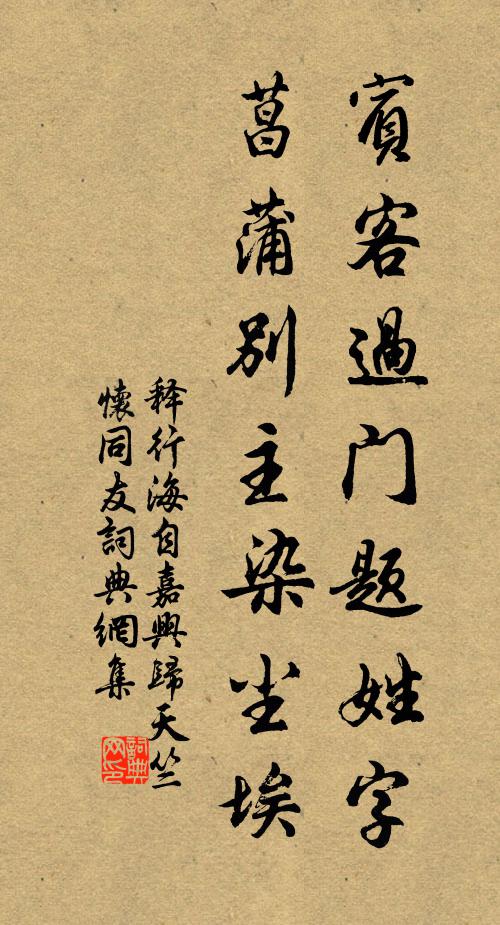 賓客過门题姓字
菖蒲别主染尘埃
释行海自嘉興歸天竺
懷同友詞典網集
詞典
网印